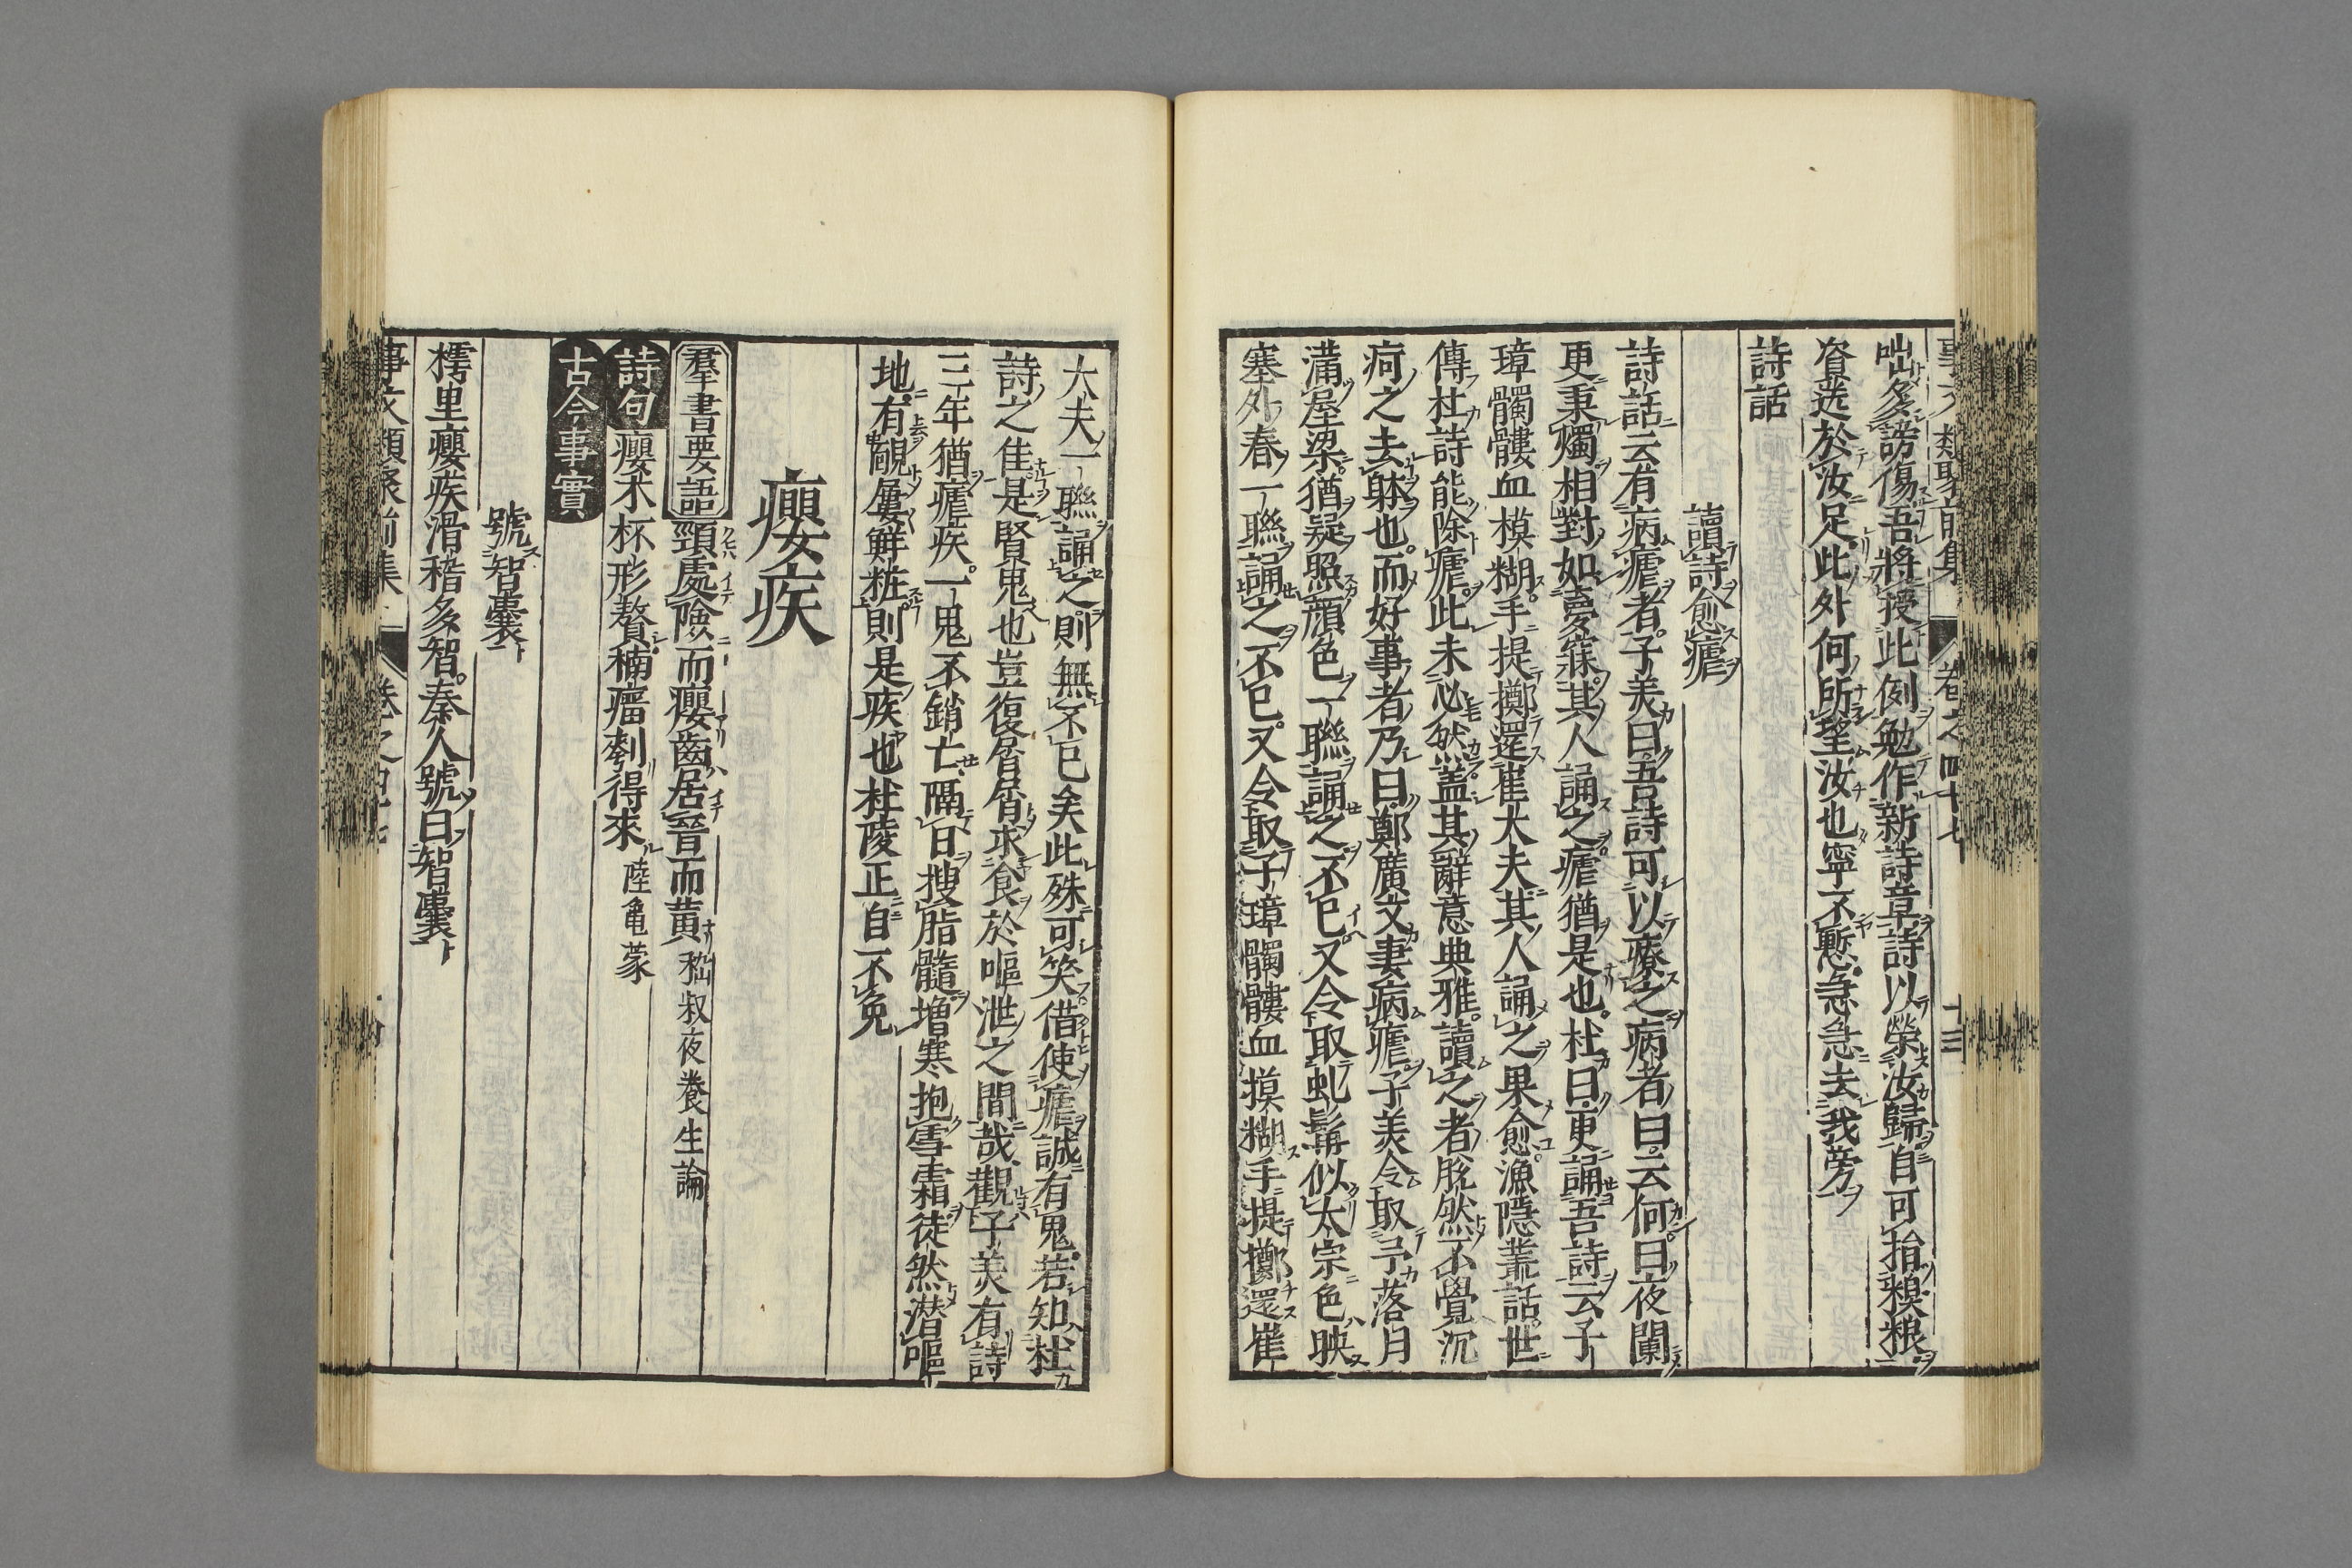 事文類聚前集 卷之四十七 十三
咄多謗傷吾將授此例勉作新詩章詩以榮汝歸自可抬糗粮
資送於汝足此外何所望汝也寧不慙急急去我旁
詩話
讀詩愈瘧
詩話云有病瘧者子美曰吾詩可以療之病者曰云何曰夜闌
更秉燭相對如夢寐其人誦之瘧猶是也杜曰更誦吾詩云子
璋髑髏血模糊手提擲還崔大夫其人誦之果愈漁隱叢話世
傳杜詩能除瘧此未必然蓋其辭意典雅讀之者脫然不覺沉
疴之去躰也而好事者乃曰鄭廣文妻病瘧子美令取予落月
滿屋梁猶疑照顔色一聯誦之不已又令取虬髯似太宗色映
塞外春一聯誦之不已又令取子璋髑髏血摸糊手提擲還崔
大夫一聯誦之則無不已矣此殊可笑借使瘧誠有鬼若知杜
詩之佳是賢鬼也豈復屑屑求食於嘔泄之間哉觀子美有詩
三年猶瘧疾一鬼不銷亡隔日搜脂髓增寒抱雪霜徒然潜嘔
地有靦屢鮮粧則是疾也杜陵正自不免
癭疾
羣書要語 頸處險而癭齒居晉而黃 嵇叔夜養生論
詩句 癭木杯形贅楠瘤刳得來 陸龜蒙
古今事實
號智囊
樗里癭疾滑稽多智秦人號曰智囊
事文類聚前集 卷之四十七